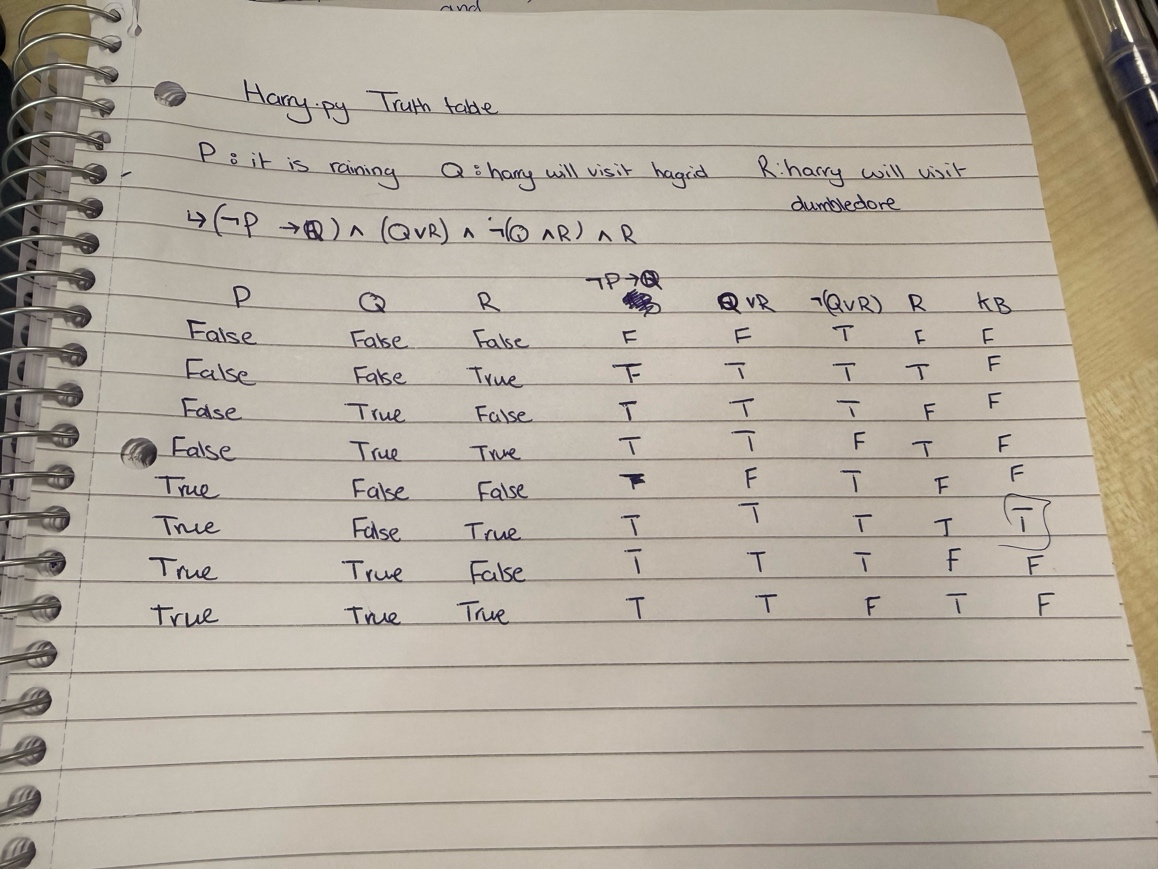 and
Harry.py Truth table
P : it is raining Q : harry will visit hagrid R : harry will visit
dumbledore
↳ (¬P → Q) ∧ (Q∨R) ∧ ¬(Q ∧R) ∧ R
P Q R ¬P→Q Q∨R ¬(Q∨R) R KB
False False False F F T F F
False False True F T T T F
False True False T T T F F
False True True T T F T F
True False False T F T F F
True False True T T T T T
True True False T T T F F
True True True T T F T F